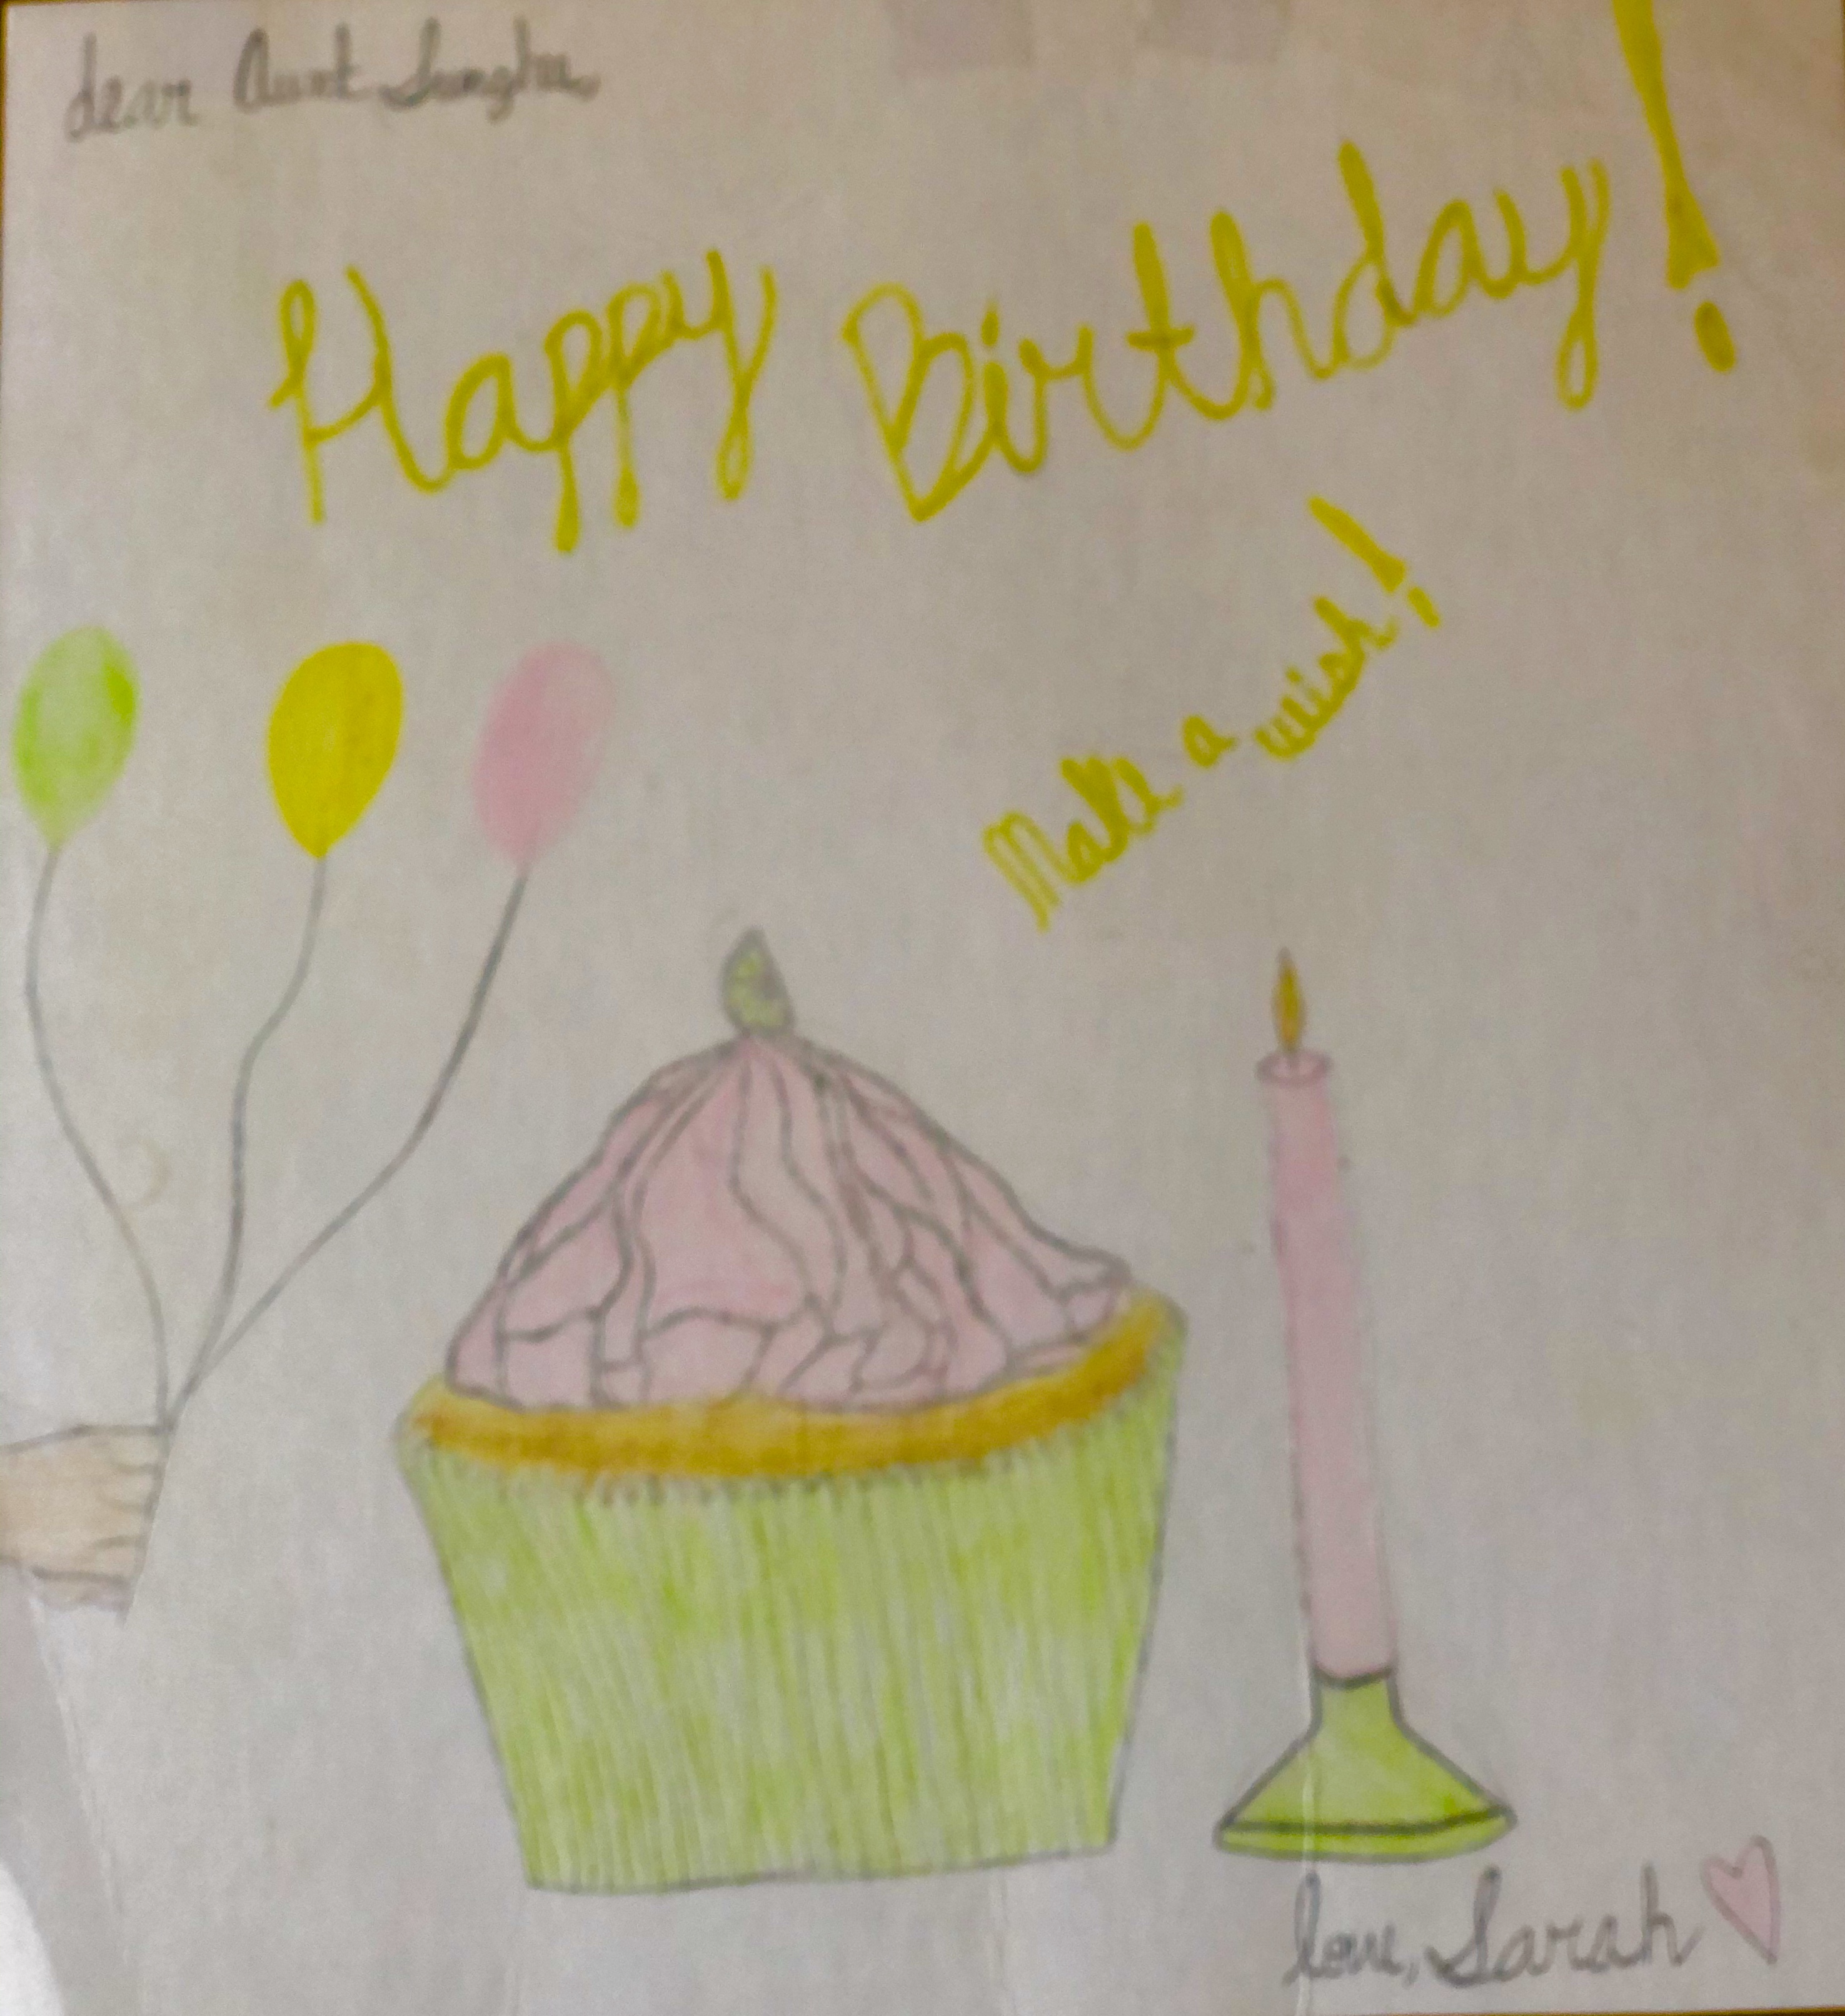 dear Aunt
Happy Birthday!
Make a wish!
love, Sarah